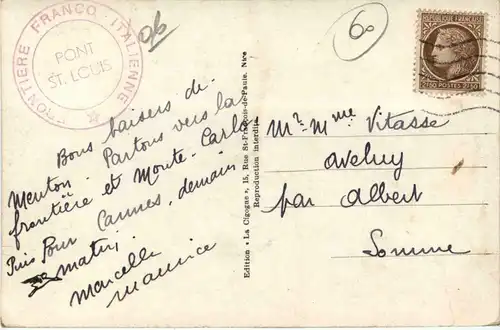 FRONTIERE FRANCO ITALIENNE
PONT
ST. LOUIS
60
REPUBLIQUE FRANÇAISE
2f50 POSTES 2f50
Bons baisers de
Menton. Partons vers la
frontière et Monte-Carlo
Puis Pour Cannes, demain
matin
Marcelle
Maurice
Edition « La Cigogne », 15, Rue St-François-de-Paule, Nice
Reproduction interdite
Mr Mme Vitasse
Aveluy
par Albert
Somme